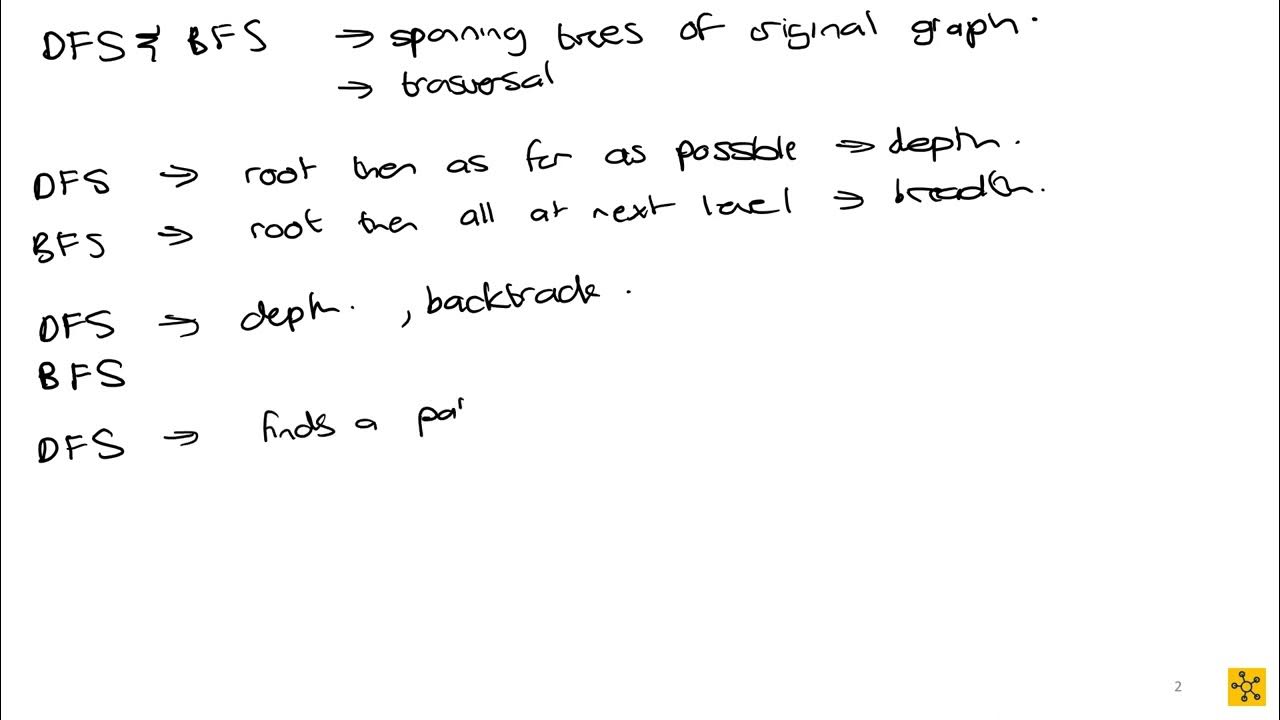 DFS & BFS → spanning trees of original graph.
→ trasversal
DFS → root then as far as possible → depth.
BFS → root then all at next level → breadth.
DFS → depth. , backtrack .
BFS
DFS → finds a pat
2